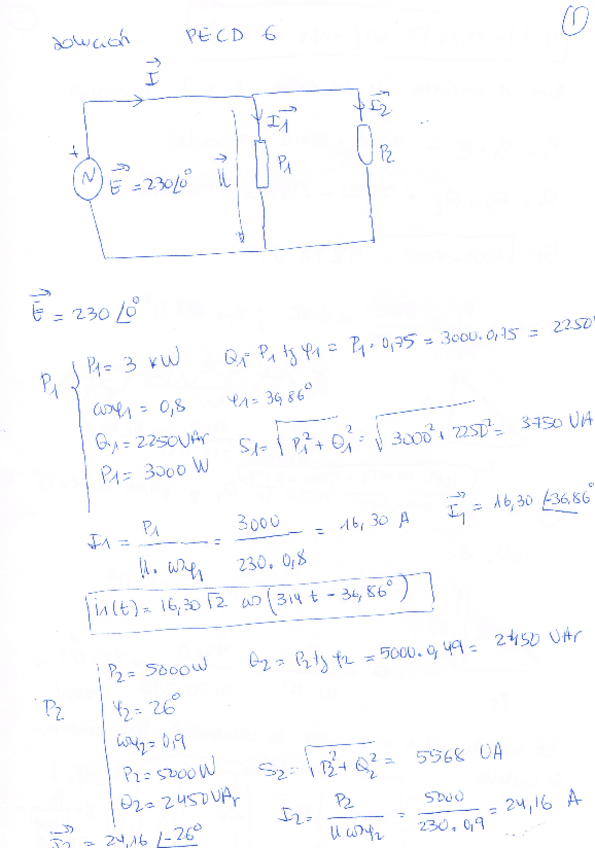 1
solución PECD 6
I
I1 I2
+ N E = 230∠0° U P1 P2
E = 230∠0°
P1 P1 = 3 kW Q1 = P1 tg φ1 = P1 · 0,75 = 3000 · 0,75 = 2250
cosφ1 = 0,8 φ1 = 36,86°
Q1 = 2250 VAr S1 = √P1² + Q1² = √3000² + 2250² = 3750 VA
P1 = 3000 W
I1 = P1 / U · cosφ1 = 3000 / 230 · 0,8 = 16,30 A I1 = 16,30 ∠-36,86°
i1(t) = 16,30 √2 cos (314 t - 36,86°)
P2 P2 = 5000 W Q2 = P2 tg φ2 = 5000 · 0,49 = 2450 VAr
φ2 = 26°
cosφ2 = 0,9
P2 = 5000 W S2 = √P2² + Q2² = 5568 VA
Q2 = 2450 VAr I2 = P2 / U cosφ2 = 5000 / 230 · 0,9 = 24,16 A
I2 = 24,16 ∠-26°